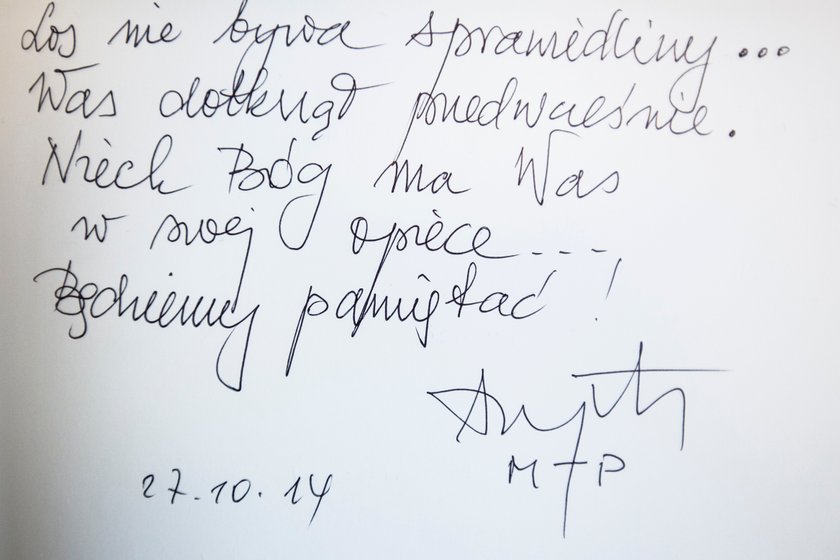 Los nie bywa sprawiedliwy...
Was dotknął przedwcześnie.
Niech Bóg ma Was
w swej opiece...
Będziemy pamiętać!
M P
27.10.14